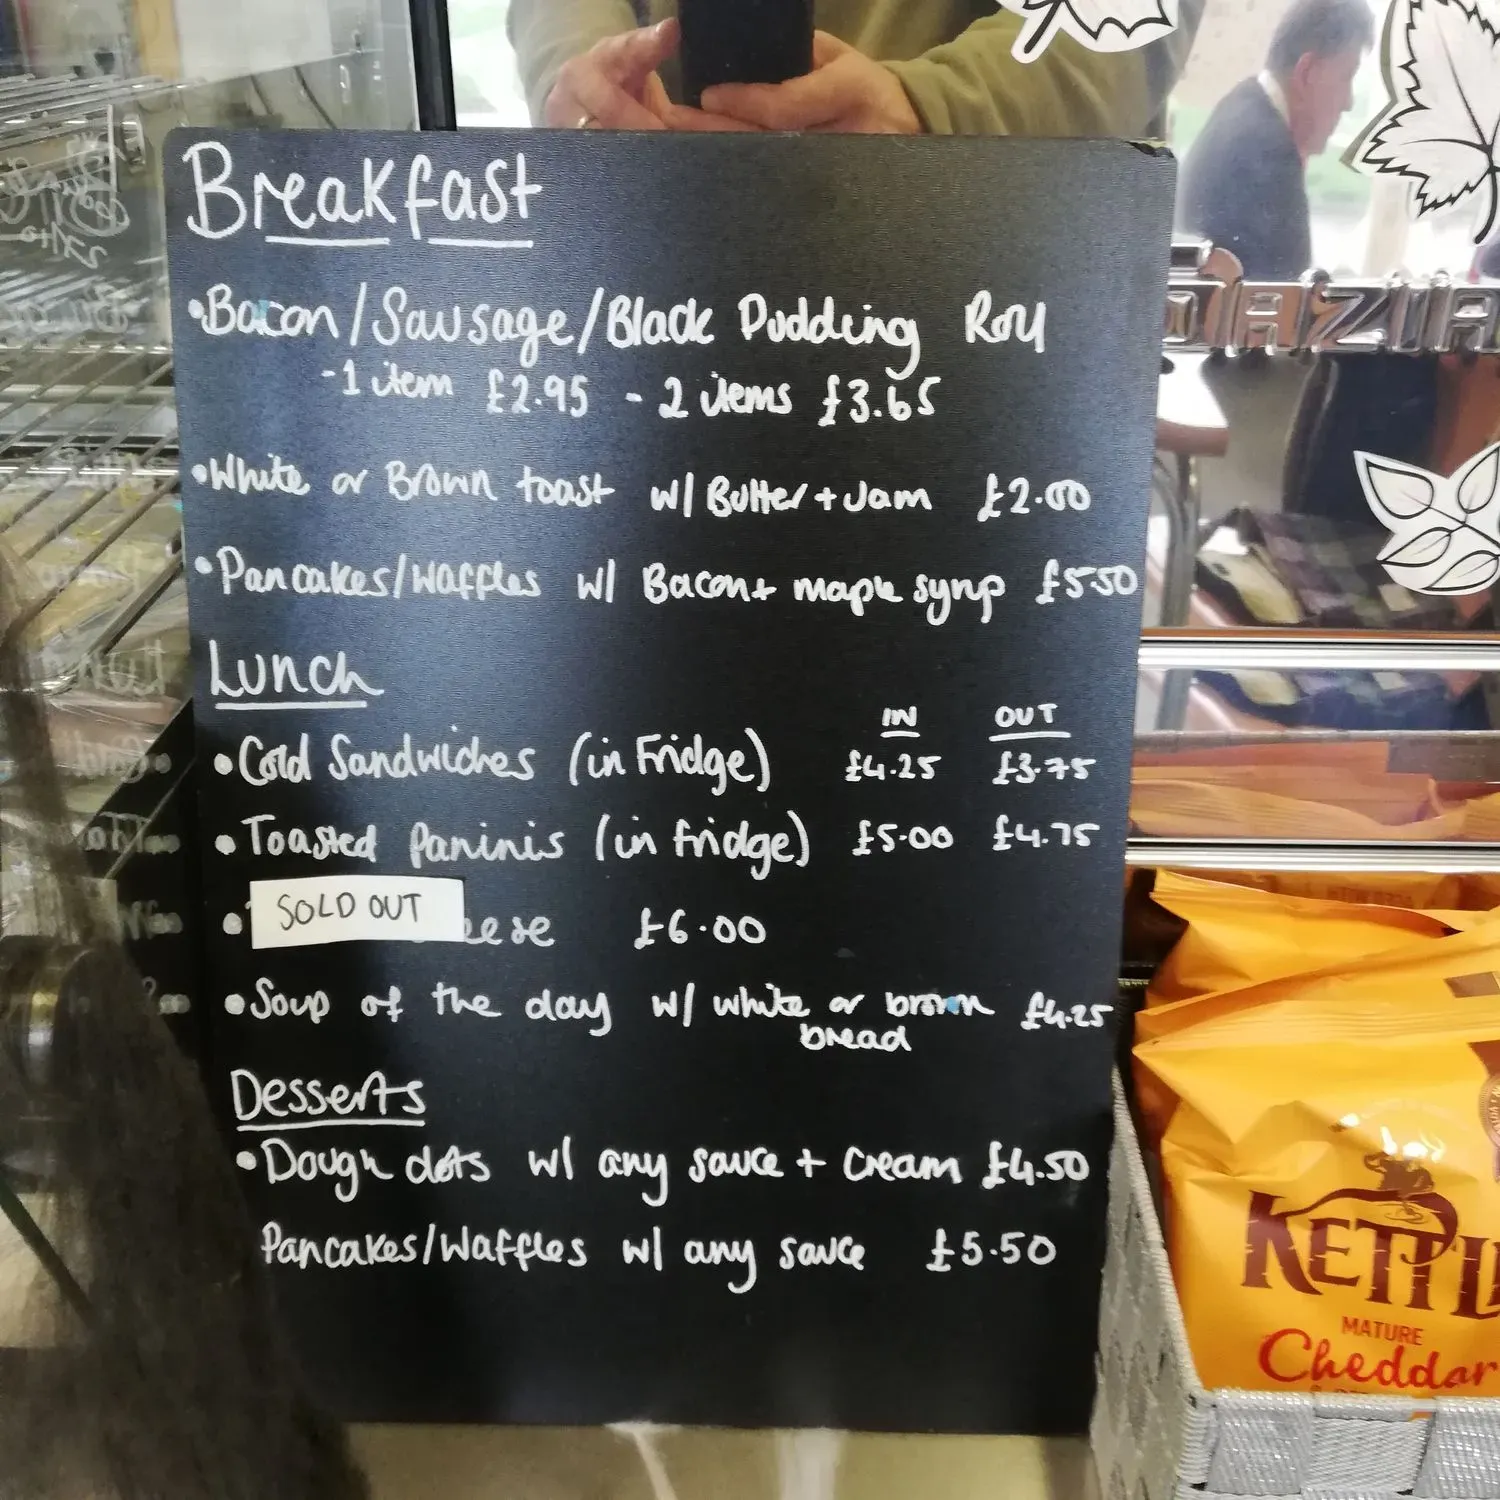 Breakfast
•Bacon/Sausage/Black Pudding Roll
-1 item £2.95 - 2 items £3.65
•White or Brown toast w/ Butter + Jam £2.00
•Pancakes/Waffles w/ Bacon + maple syrup £5.50
Lunch
IN OUT
•Cold Sandwiches (in Fridge) £4.25 £3.75
•Toasted Paninis (in fridge) £5.00 £4.75
• SOLD OUT eese £6.00
•Soup of the day w/ white or brown £4.25
bread
Desserts
•Dough dots w/ any sauce + cream £4.50
Pancakes/Waffles w/ any sauce £5.50
KETTL
MATURE
Cheddar